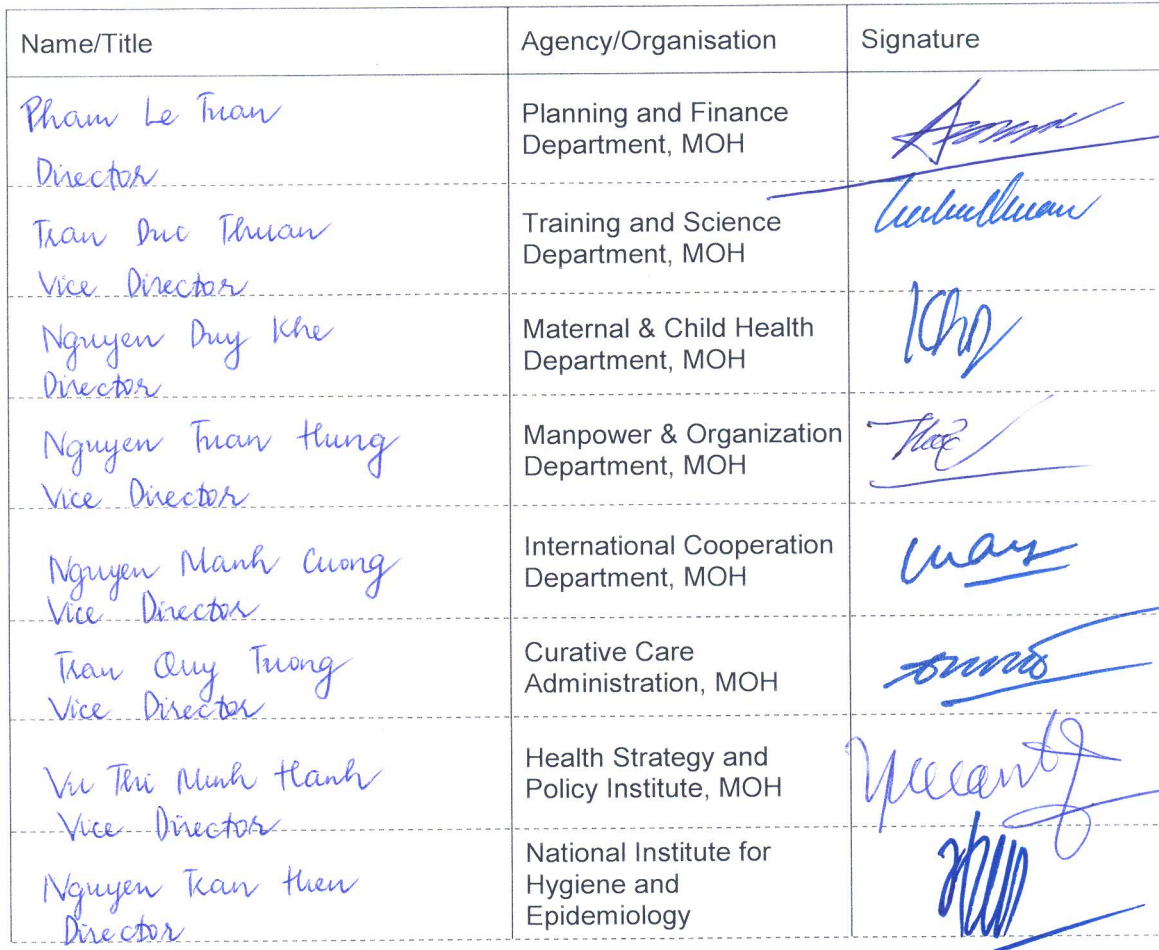 Name/Title
Agency/Organisation
Signature
Pham Le Tuan
Director
Planning and Finance
Department, MOH
Tran Duc Thuan
Vice Director
Training and Science
Department, MOH
Nguyen Duy Khe
Director
Maternal & Child Health
Department, MOH
Nguyen Tuan Hung
Vice Director
Manpower & Organization
Department, MOH
Nguyen Manh Cuong
Vice Director
International Cooperation
Department, MOH
Tran Quy Tuong
Vice Director
Curative Care
Administration, MOH
Vu Thi Minh Hanh
Vice Director
Health Strategy and
Policy Institute, MOH
Nguyen Tran Hien
Director
National Institute for
Hygiene and
Epidemiology